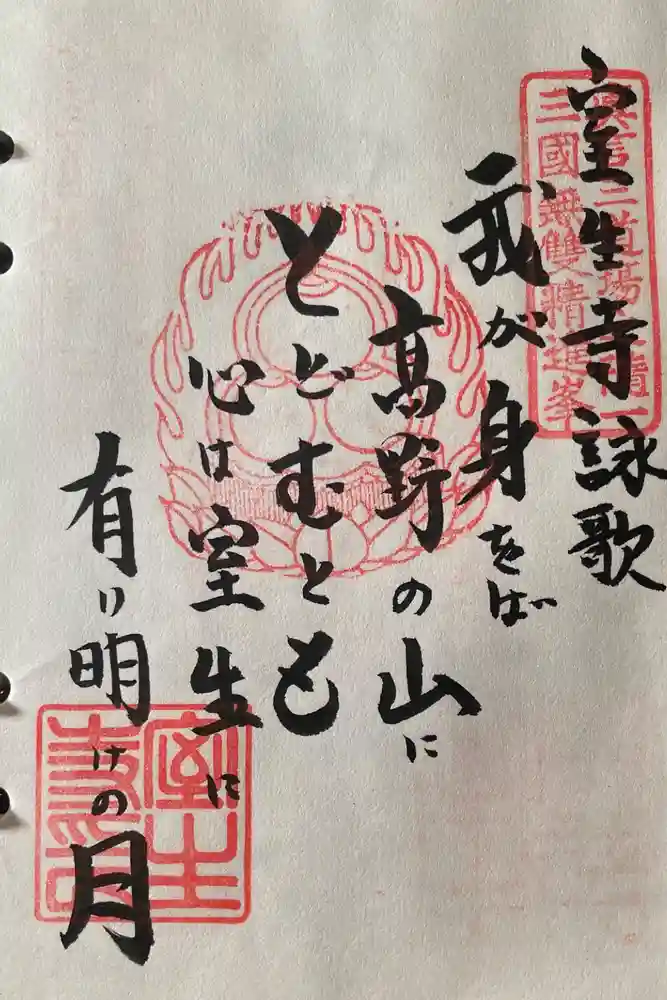 室生寺詠歌
我が身をば
高野の山に
とどむとも
心は室生に
有り明けの月
三國無雙精進峯
室生